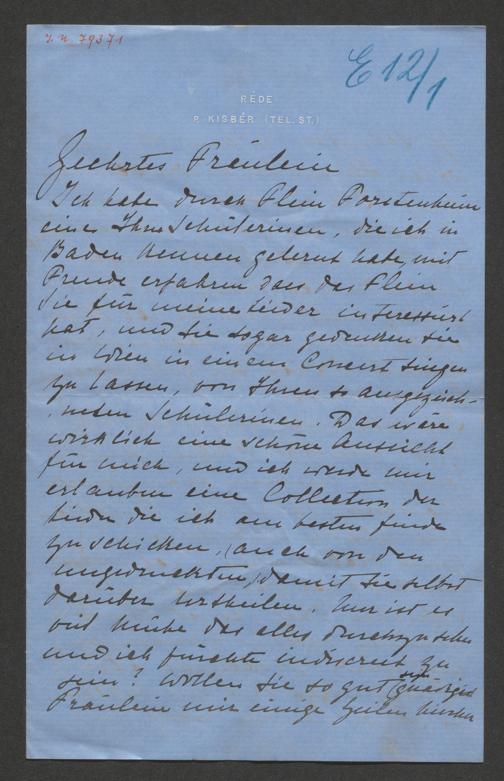 I. N. 79371
E 12/1
RÉDE
P. KISBÉR (TEL. ST.)
Geehrtes Fräulein
Ich habe durch Flein Forstenheim
eine Ihre Schülerinen, die ich in
Baden kennen gelernt habe, mit
Freude erfahren dass das Flein
Sie für meine Lieder interessirt
hat, und Sie sogar gedenken sie
in Wien in einem Concert singen
zu lassen, von Ihren so ausgezeich-
neten Schülerinen. Das wäre
wirklich eine schöne Aussicht
für mich, und ich werde mir
erlauben eine Collection der
Lieder die ich am besten finde
zu schicken, (auch von den
ungedruckten) damit Sie selbst
darüber urtheilen. Nur ist es
viel Mühe das alles durchzusehen
und ich fürchte indiscret zu
sein? Wollen Sie so gut sein gnädiges
Fräulein mir einige Zeilen